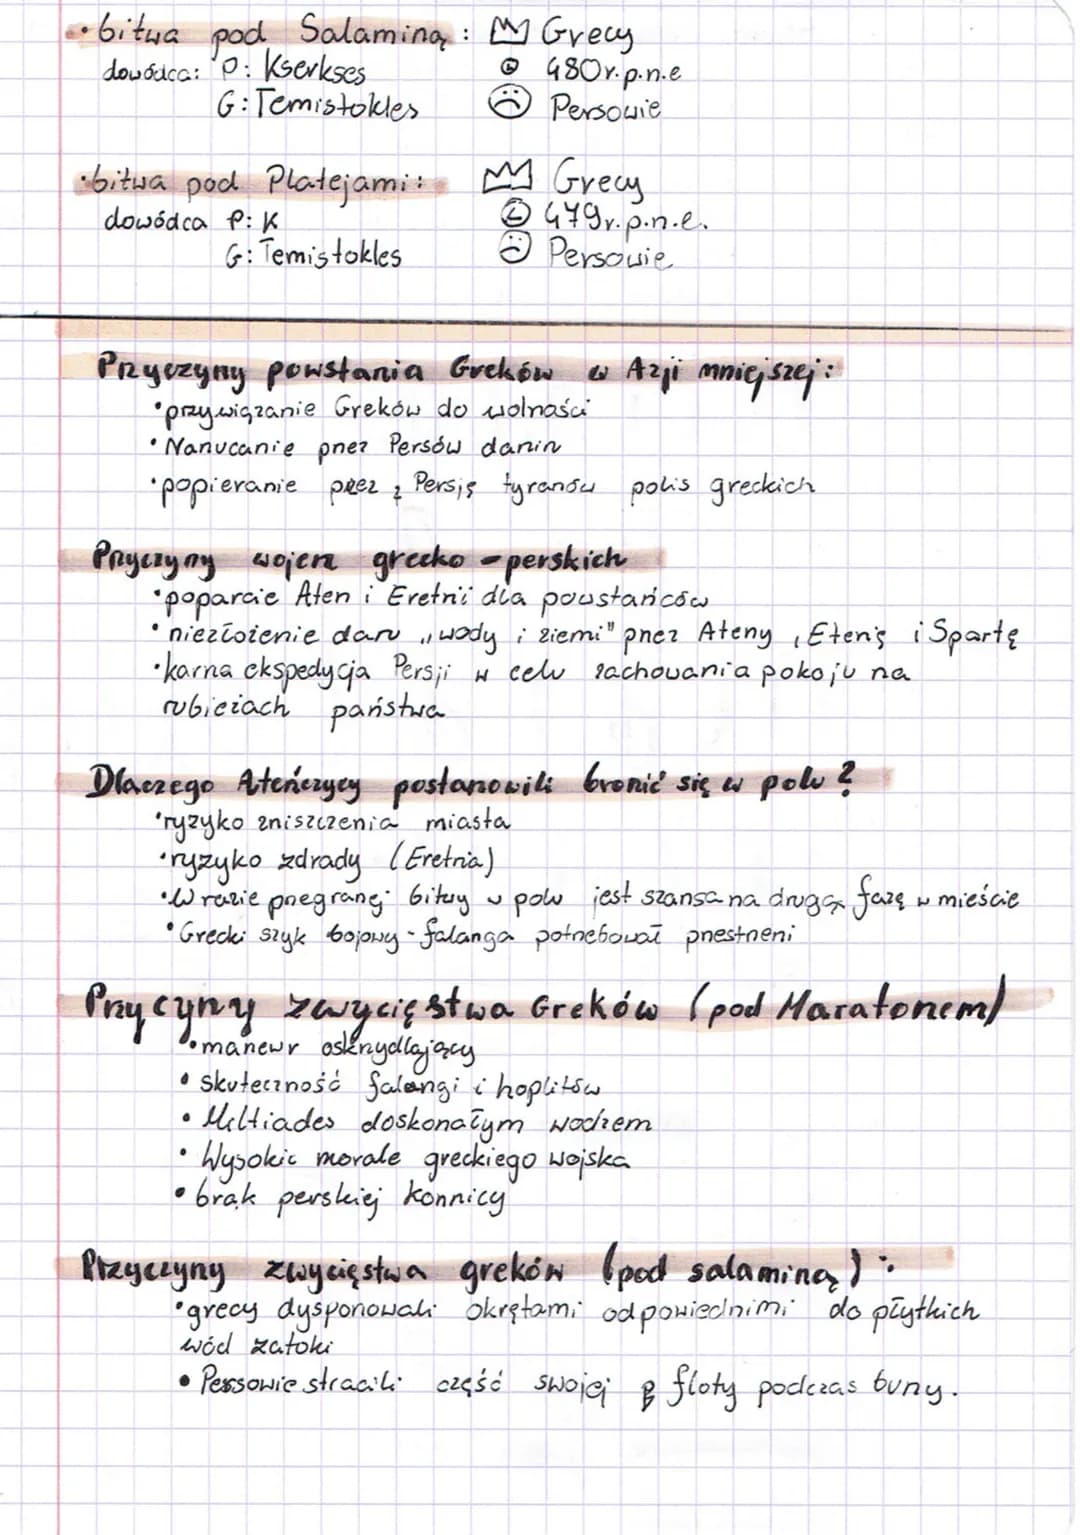 • bitwa pod Salaminą: Grecy
dowódca: P: Kserkses 480r.p.n.e
G: Temistokles Persowie
• bitwa pod Platejami: Grecy
dowódca P: K 479r.p.n.e.
G: Temistokles Persowie
Przyczyny powstania Greków w Azji mniejszej:
• przywiązanie Greków do wolności
• Narzucanie przez Persów danin
• popieranie przez Persję tyranów polis greckich
Przyczyny wojen grecko - perskich
• poparcie Aten i Eretrii dla powstańców
• niezłożenie daru „wody i ziemi" przez Ateny, Etenię i Spartę
• karna ekspedycja Persji w celu zachowania pokoju na
rubieżach państwa
Dlaczego Ateńczycy postanowili bronić się w polu?
• ryzyko zniszczenia miasta
• ryzyko zdrady (Eretria)
• W razie przegranej bitwy w polu jest szansa na drugą fazę w mieście
• Grecki szyk bojowy - falanga potrzebował przestrzeni
Przycyny zwycięstwa Greków (pod Maratonem)
• manewr oskrzydlający
• skuteczność falangi i hoplitów
• Miltiades doskonałym wodzem
• Wysokie morale greckiego wojska
• brak perskiej konnicy
Przyczyny zwycięstwa greków (pod salaminą):
• grecy dysponowali okrętami odpowiednimi do płytkich
wód zatoki
• Persowie stracili część swojej floty podczas burzy.